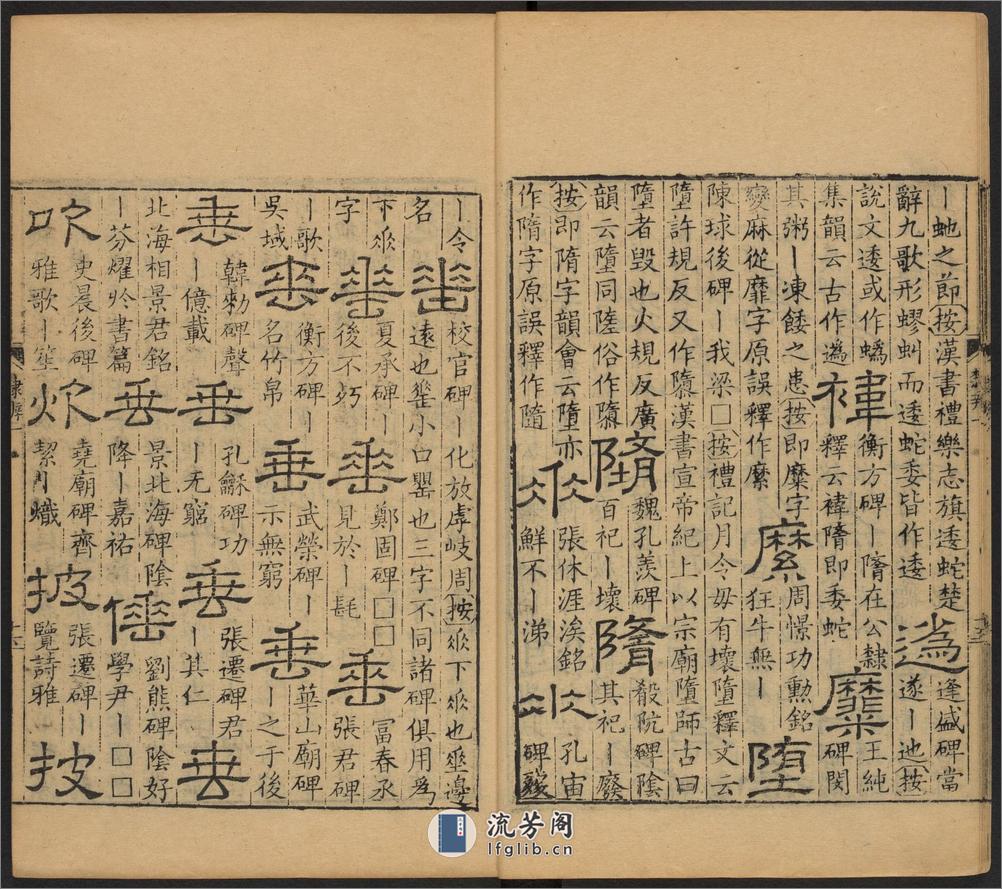 丨虵之節按漢書禮樂志旗逶蛇楚逶逢盛碑當
辭九歌形蟉虯而逶蛇委皆作逶遂丨迆按
說文逶或作蟡褘衡方碑丨隋在公隸糜王純
集韻云古作逶釋云褘隋即委蛇碑閔
其粥丨凍餧之患按即糜字縻周憬功勳銘墮
變麻從靡字原誤釋作縻狂牛無丨
陳球後碑丨我梁□按禮記月令毋有壞墮釋文云
墮許規反又作隳漢書宣帝紀上以宗廟墮師古曰
墮者毀也火規反廣隋魏孔羨碑隋殽阬碑陰
韻云墮同陸俗作隳百祀丨壞其祀丨廢
按即隋字韻會云墮亦張休涯涘銘孔宙
作隋字原誤釋作隨鮮不丨涕碑
丨令垂校官碑丨化放虖岐周按𠂹下𠂹也垂邊
名遠也小口罌也三字不同諸碑俱用爲
下𠂹垂夏承碑丨垂鄭固碑□□垂富春丞
字後不朽見於丨耄張君碑
丨歌垂衡方碑丨垂武榮碑丨垂華山廟碑
吳域名竹帛示無窮丨之于後
垂韓勑碑聲垂孔龢碑功垂張遷碑君垂
丨億載丨无窮丨其仁
北海相景君銘垂景北海碑陰倕劉熊碑陰好
丨芬燿於書篇降丨嘉祐學尹丨□□
吹史晨後碑炊堯廟碑齊披張遷碑丨披
雅歌丨笙絜丨熾覽詩雅
流芳阁
lfglib.cn